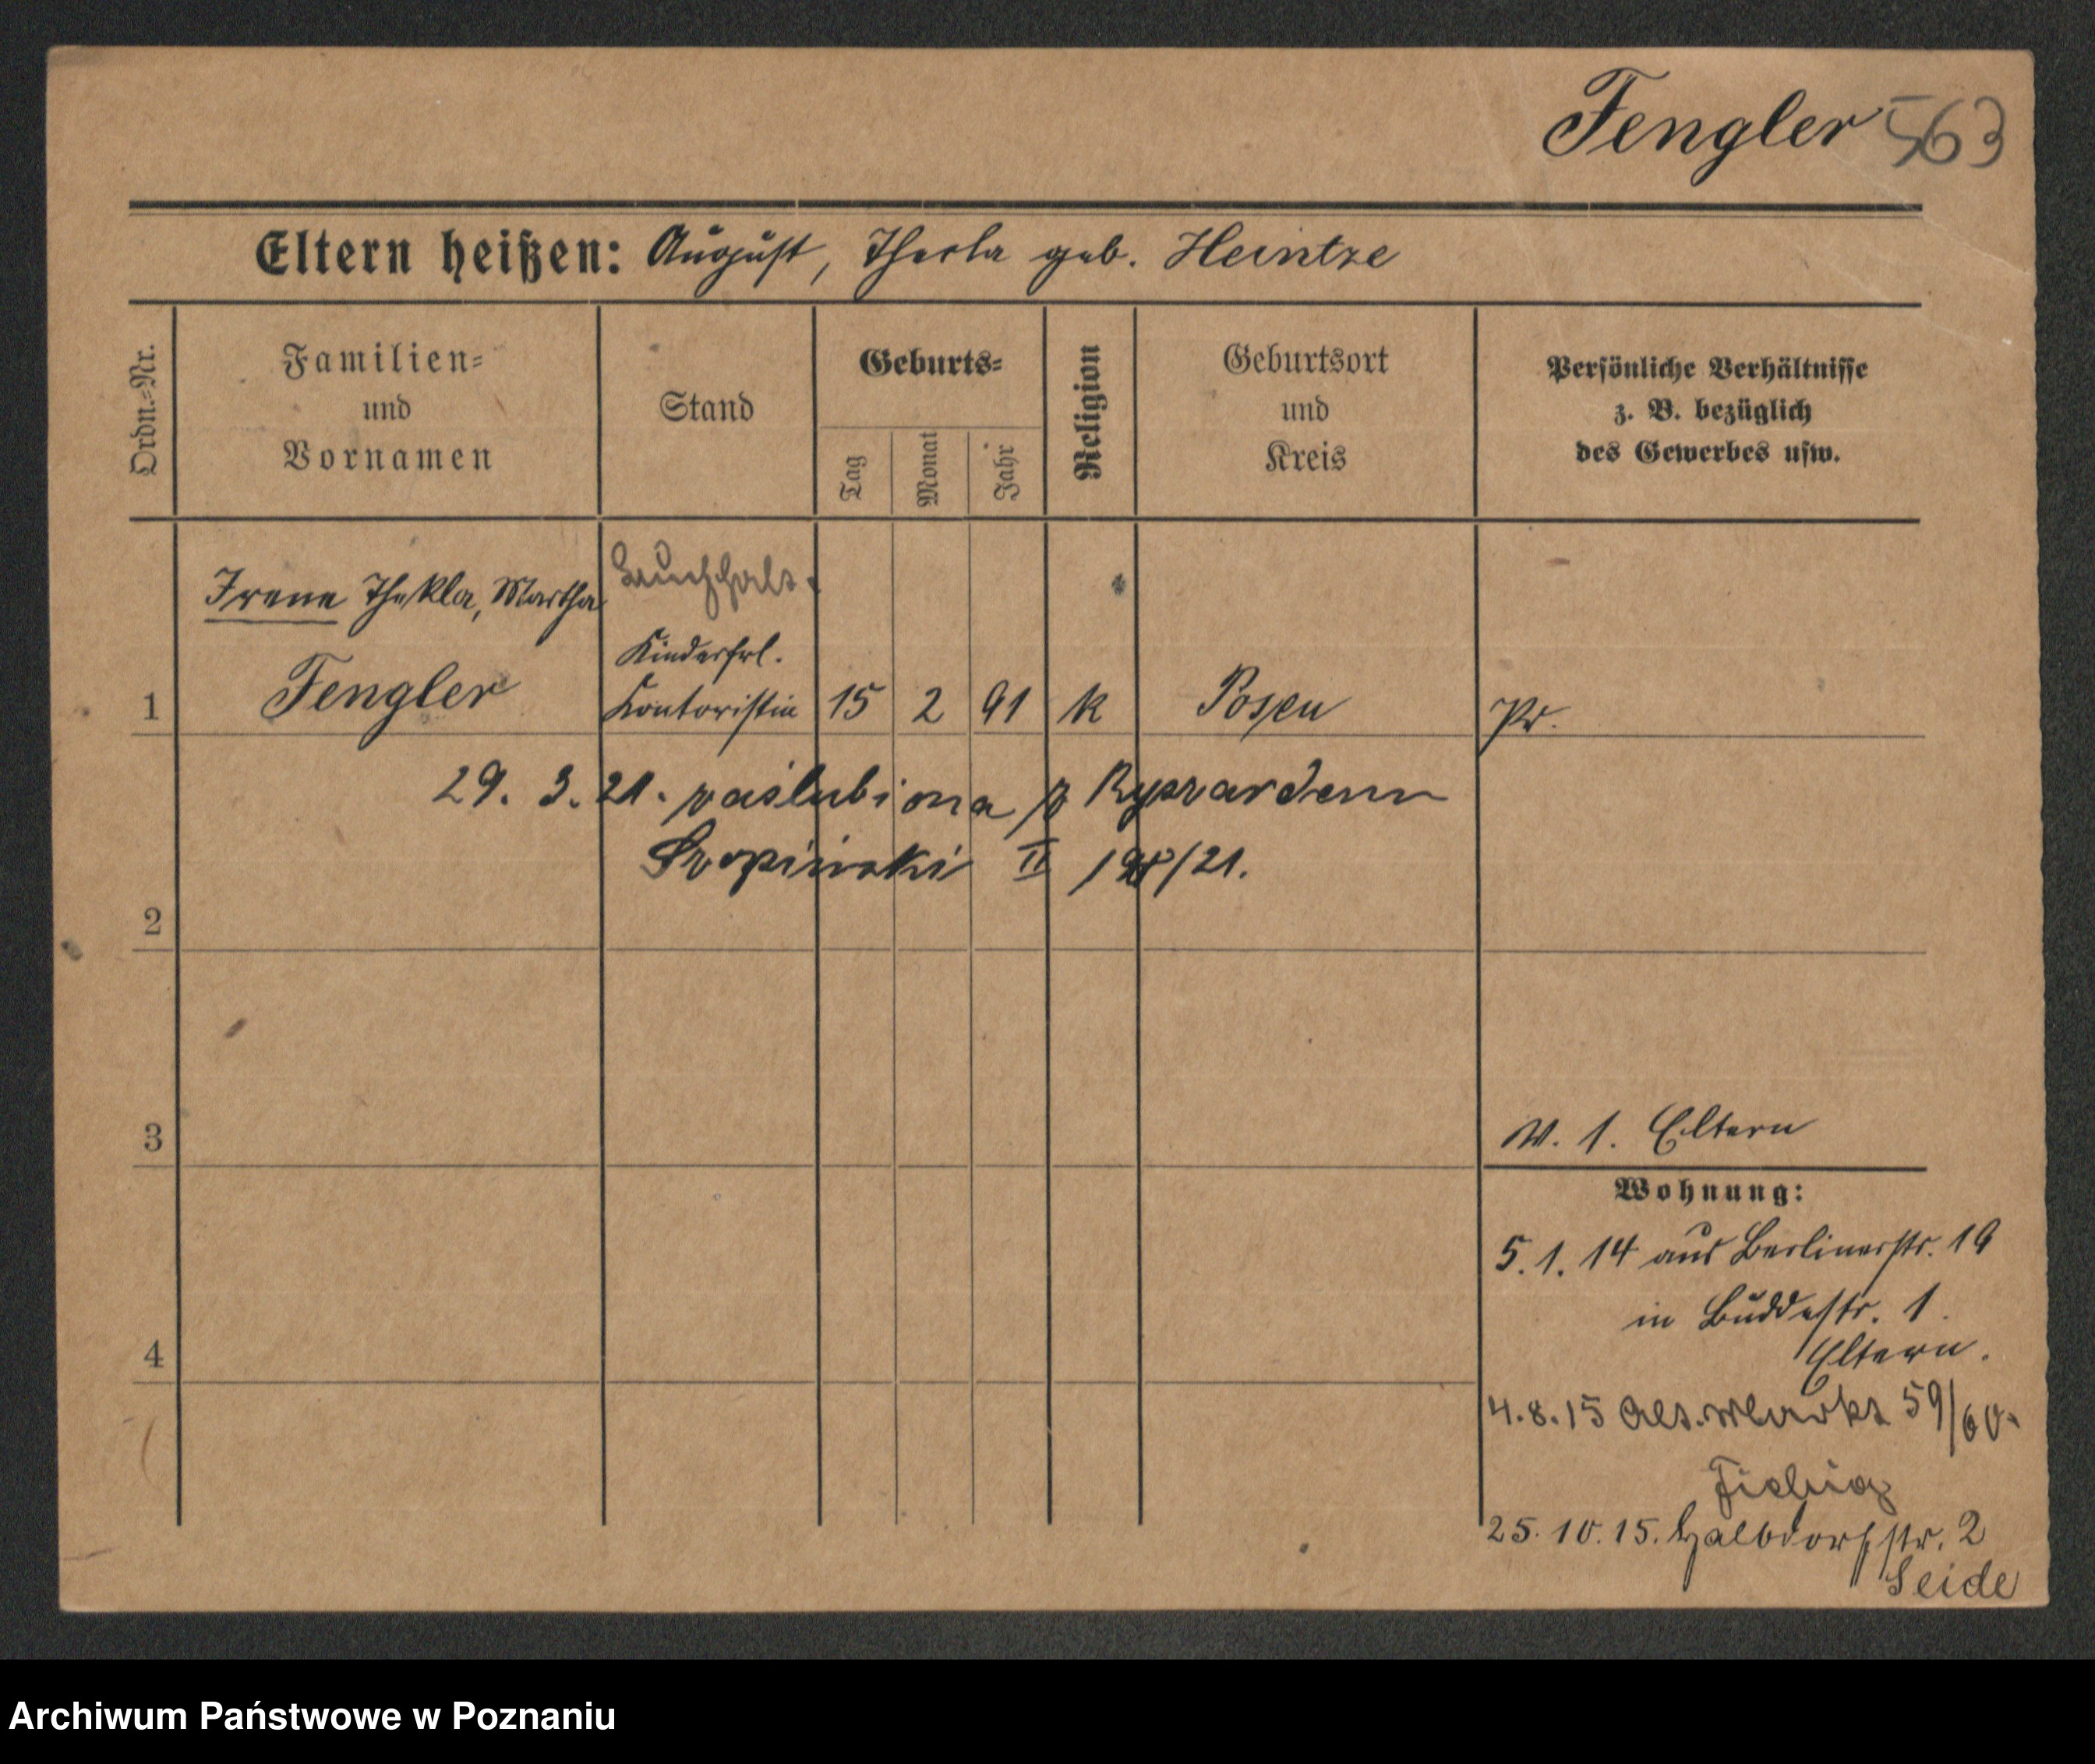 Fengler 563
Eltern heißen: August, Thekla geb. Heintze
Ordn.-Nr.
Familien-
und
Vornamen
Stand
Geburts-
Tag
Monat
Jahr
Religion
Geburtsort
und
Kreis
Persönliche Verhältnisse
z. B. bezüglich
des Gewerbes usw.
Irene Thekla, Martha
Buchhalt.
Kinderfrl.
1 Fengler Kontoristin 15 2 91 k Posen Pr.
29. 3. 21. zaślubiona z Ryszardem
II /21.
2
3
W. 1. Eltern
Wohnung:
5. 1. 14 aus Berlinerstr. 19
in Buddestr. 1.
4
Eltern.
4.8.15 Alt. Markt 59/60.
Fiebig
25. 10. 15. Halbdorfstr. 2
Seide
Archiwum Państwowe w Poznaniu